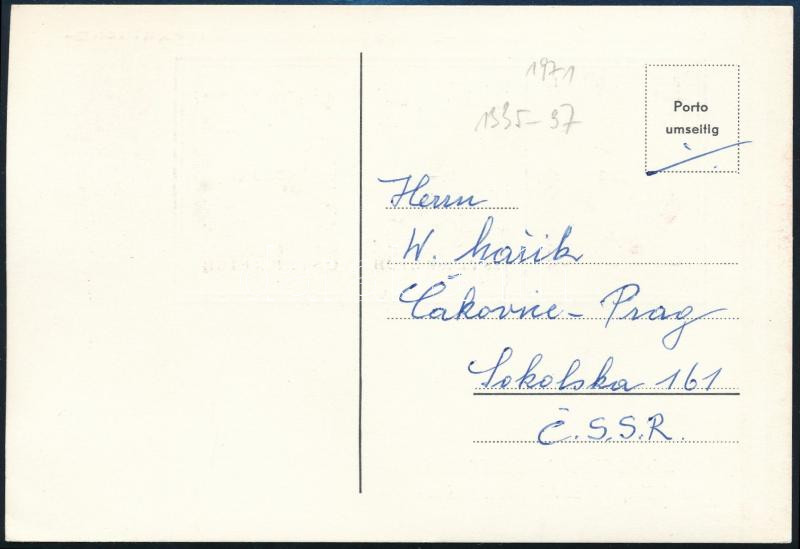 1971
1335-37
Porto
umseitig
Herrn
W. Mařik
Čakovice - Prag
Sokolska 161
Č.S.S.R.